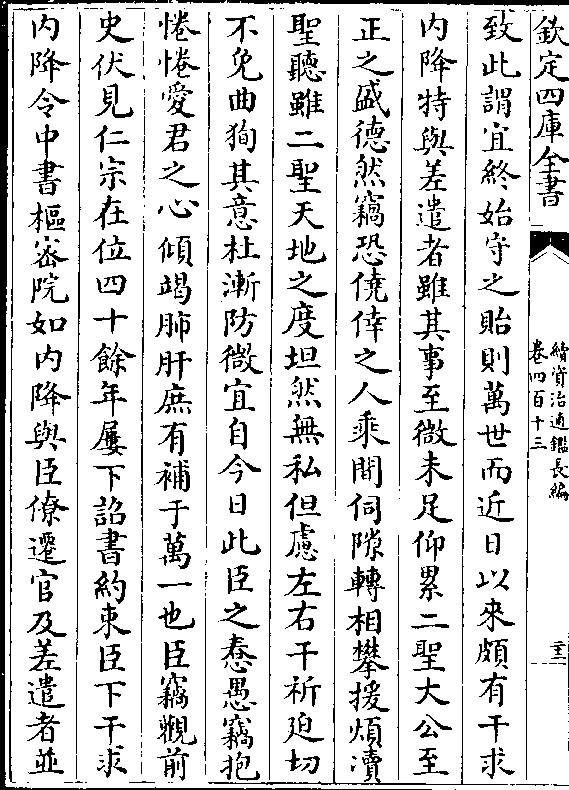 欽定四庫全書
續資治通鑑長編
卷四百十三
致此謂宜終始守之貽則萬世而近日以來頗有干求
内降特與差遣者雖其事至微未足仰累二聖大公至
正之盛德然竊恐僥倖之人乘間伺隙轉相攀援煩瀆
聖聽雖二聖天地之度坦然無私但慮左右干祈廹切
不免曲狥其意杜漸防微宜自今日此臣之惷愚竊抱
惓惓愛君之心傾竭肺肝庶有補于萬一也臣竊觀前
史伏見仁宗在位四十餘年屢下詔書約束臣下干求
内降令中書樞密院如内降與臣僚遷官及差遣者並